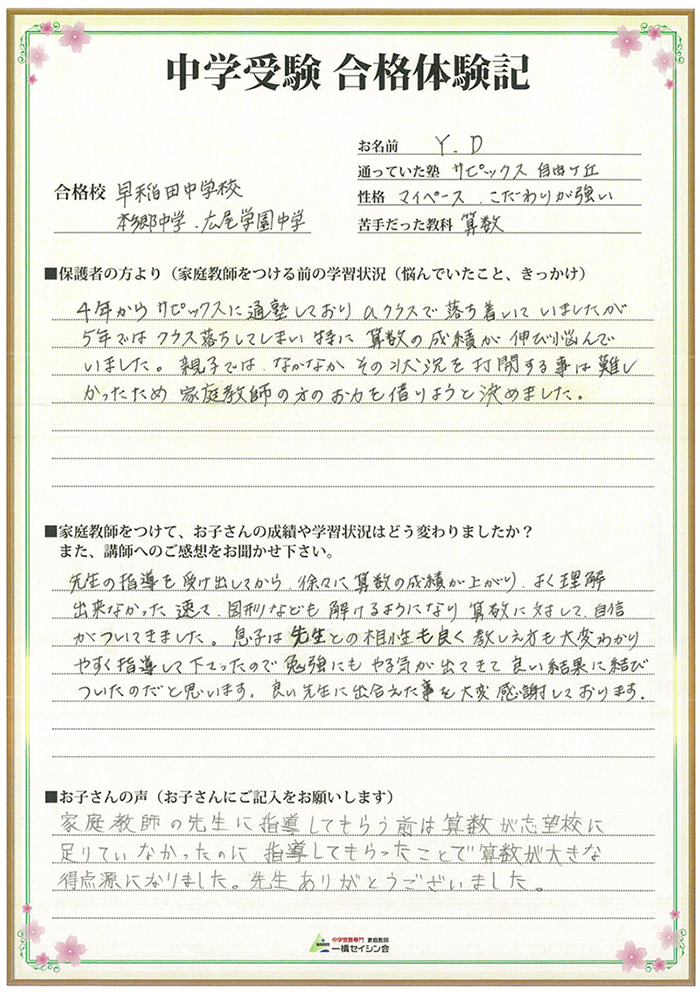 中学受験 合格体験記
お名前 Y.D
通っていた塾 サピックス 自由ヶ丘
合格校 早稲田中学校
性格 マイペース、こだわりが強い
本郷中学、広尾学園中学
苦手だった教科 算数
■保護者の方より（家庭教師をつける前の学習状況（悩んでいたこと、きっかけ）
4年からサピックスに通塾しており αクラスで落ち着いていましたが
5年ではクラス落ちしてしまい特に 算数の成績が伸び悩んで
いました。親子では、なかなか その状況を打開する事は難し
かったため 家庭教師の方のお力を借りようと決めました。
■家庭教師をつけて、お子さんの成績や学習状況はどう変わりましたか？
また、講師へのご感想をお聞かせ下さい。
先生の指導を受け出してから、徐々に算数の成績が上がり、よく理解
出来なかった 速さ、図形なども 解けるようになり 算数に対して、自信
がついてきました。息子は 先生との相性も良く 教え方も大変わかり
やすく指導して下さったので 勉強にも やる気が出てきて 良い結果に結び
ついたのだと思います。良い先生に出合えた事を大変感謝しております。
■お子さんの声（お子さんにご記入をお願いします）
家庭教師の先生に指導してもらう前は算数が志望校に
足りていなかったのに 指導してもらったことで算数が大きな
得点源になりました。先生ありがとうございました。
中学受験専門 家庭教師
一橋セイシン会